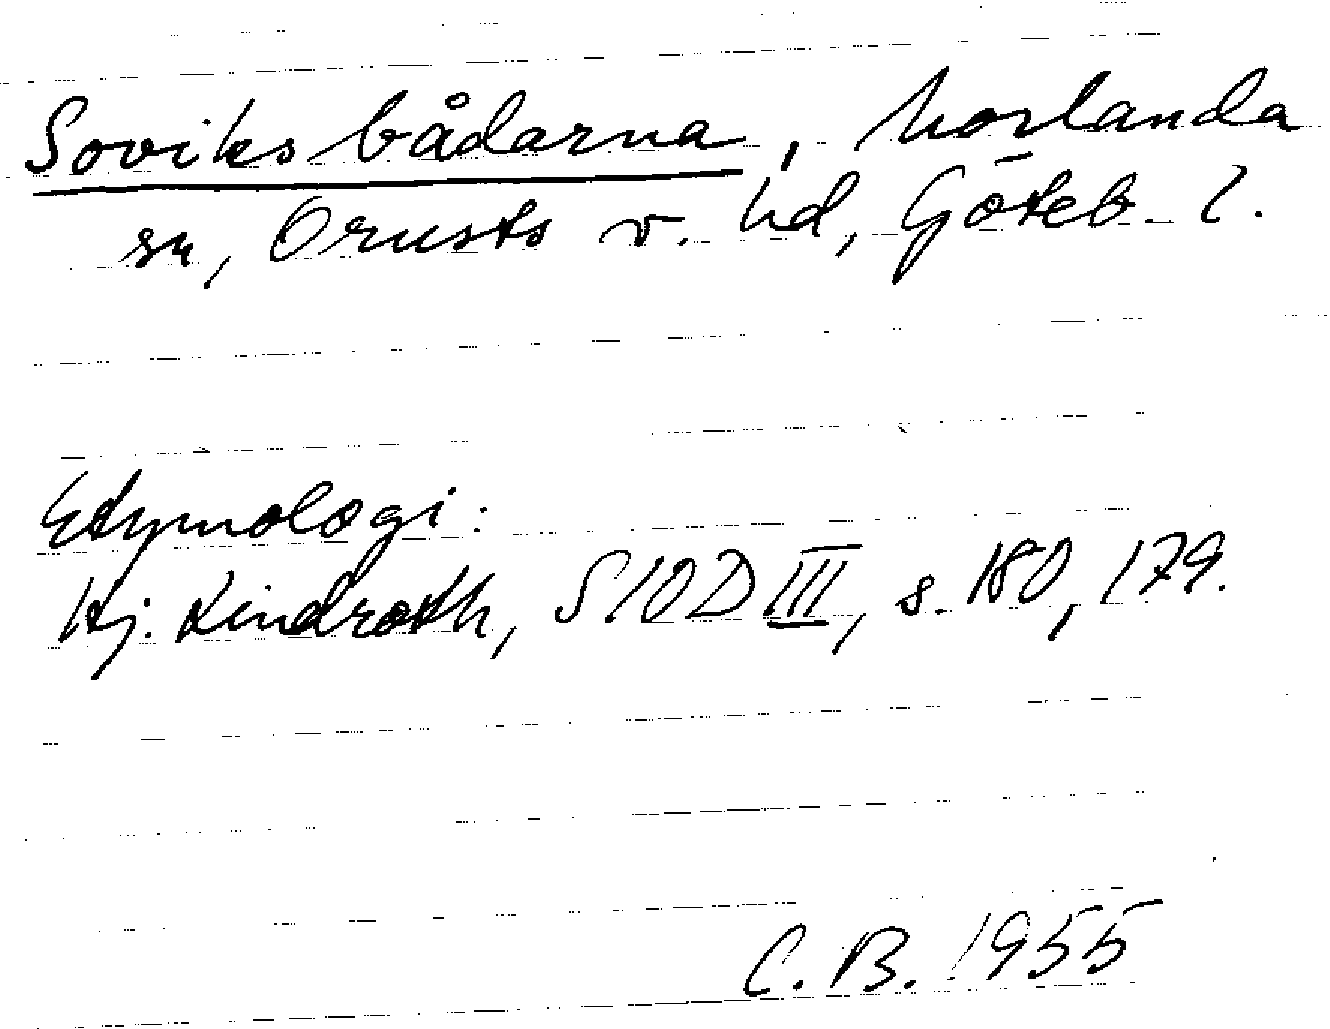 Soviks bådarna, Morlanda
sn, Orusts v. hd, Göteb. l.
Etymologi:
Hj. Lindroth, SIOD III, s. 180, 179.
C. B. 1955